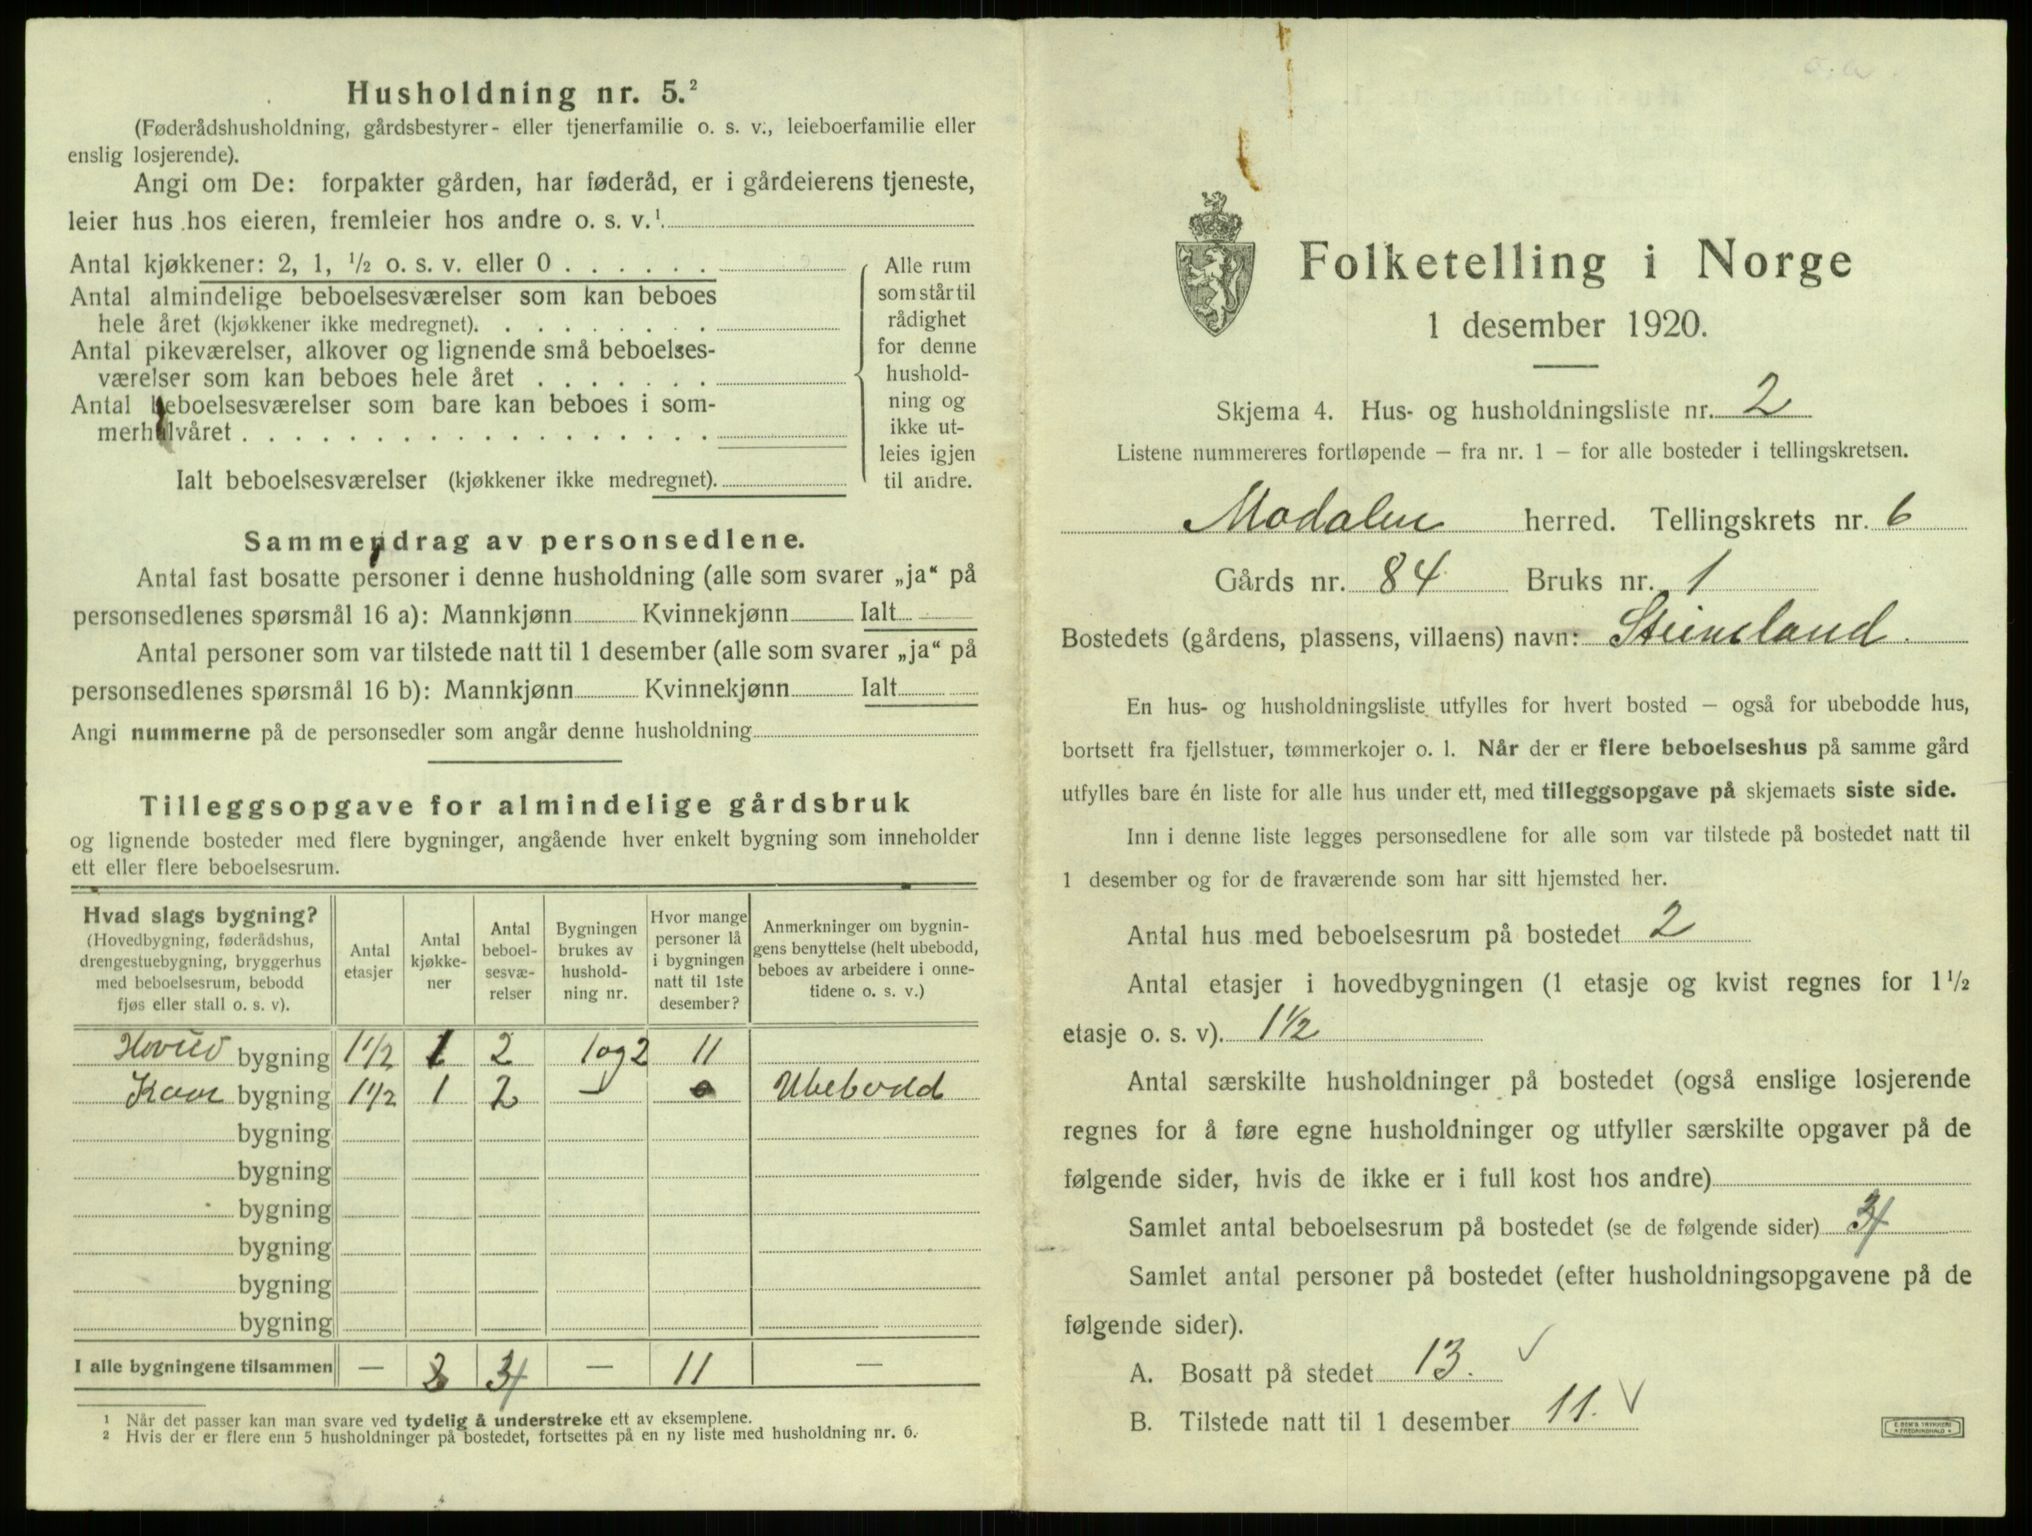 Husholdning nr. 5.²
(Føderådshusholdning, gårdsbestyrer- eller tjenerfamilie o. s. v., leieboerfamilie eller
enslig losjerende).
Angi om De: forpakter gården, har føderåd, er i gårdeierens tjeneste,
leier hus hos eieren, fremleier hos andre o. s. v.¹
Antal kjøkkener: 2, 1, ½ o. s. v. eller 0 . . . . . .
Antal almindelige beboelsesværelser som kan beboes
hele året (kjøkkener ikke medregnet). . . . . . . . .
Antal pikeværelser, alkover og lignende små beboelses-
værelser som kan beboes hele året . . . . . . .
Antal beboelsesværelser som bare kan beboes i som-
merhalvåret . . . . . . . . . . . . . . . . . .
Ialt beboelsesværelser (kjøkkener ikke medregnet).
Alle rum
som står til
rådighet
for denne
hushold-
ning og
ikke ut-
leies igjen
til andre.
Sammendrag av personsedlene.
Antal fast bosatte personer i denne husholdning (alle som svarer „ja“ på
personsedlenes spørsmål 16 a): Mannkjønn Kvinnekjønn Ialt
Antal personer som var tilstede natt til 1 desember (alle som svarer „ja“ på
personsedlenes spørsmål 16 b): Mannkjønn Kvinnekjønn Ialt
Angi nummerne på de personsedler som angår denne husholdning
Tilleggsopgave for almindelige gårdsbruk
og lignende bosteder med flere bygninger, angående hver enkelt bygning som inneholder
ett eller flere beboelsesrum.
Hvad slags bygning?
(Hovedbygning, føderådshus,
drengestuebygning, bryggerhus
med beboelsesrum, bebodd
fjøs eller stall o. s. v).
Antal
etasjer
Antal
kjøkke-
ner
Antal
beboel-
sesvæ-
relser
Bygningen
brukes av
hushold-
ning nr.
Hvor mange
personer lå
i bygningen
natt til 1ste
desember?
Anmerkninger om bygnin-
gens benyttelse (helt ubebodd,
beboes av arbeidere i onne-
tidene o. s. v.)
Hoved bygning 1½ 1 2 1 og 2 11
Kaar bygning 1½ 1 2 — 0 Ubebodd
bygning
bygning
bygning
bygning
bygning
bygning
I alle bygningene tilsammen — 2 4 — 11 —
¹ Når det passer kan man svare ved tydelig å understreke ett av eksemplene.
² Hvis der er flere enn 5 husholdninger på bostedet, fortsettes på en ny liste med husholdning nr. 6.
Folketelling i Norge
1 desember 1920.
Skjema 4. Hus- og husholdningsliste nr. 2
Listene nummereres fortløpende — fra nr. 1 — for alle bosteder i tellingskretsen.
Modalen herred. Tellingskrets nr. 6
Gårds nr. 84 Bruks nr. 1
Bostedets (gårdens, plassens, villaens) navn: Steinsland.
En hus- og husholdningsliste utfylles for hvert bosted — også for ubebodde hus,
bortsett fra fjellstuer, tømmerkojer o. l. Når der er flere beboelseshus på samme gård
utfylles bare én liste for alle hus under ett, med tilleggsopgave på skjemaets siste side.
Inn i denne liste legges personsedlene for alle som var tilstede på bostedet natt til
1 desember og for de fraværende som har sitt hjemsted her.
Antal hus med beboelsesrum på bostedet 2
Antal etasjer i hovedbygningen (1 etasje og kvist regnes for 1½
etasje o. s. v). 1½
Antal særskilte husholdninger på bostedet (også enslige losjerende
regnes for å føre egne husholdninger og utfyller særskilte opgaver på de
følgende sider, hvis de ikke er i full kost hos andre)
Samlet antal beboelsesrum på bostedet (se de følgende sider) 4
Samlet antal personer på bostedet (efter husholdningsopgavene på de
følgende sider).
A. Bosatt på stedet 13. ✓
B. Tilstede natt til 1 desember 11. ✓
E. SEM'S TRYKKERI
FREDRIKSHALD